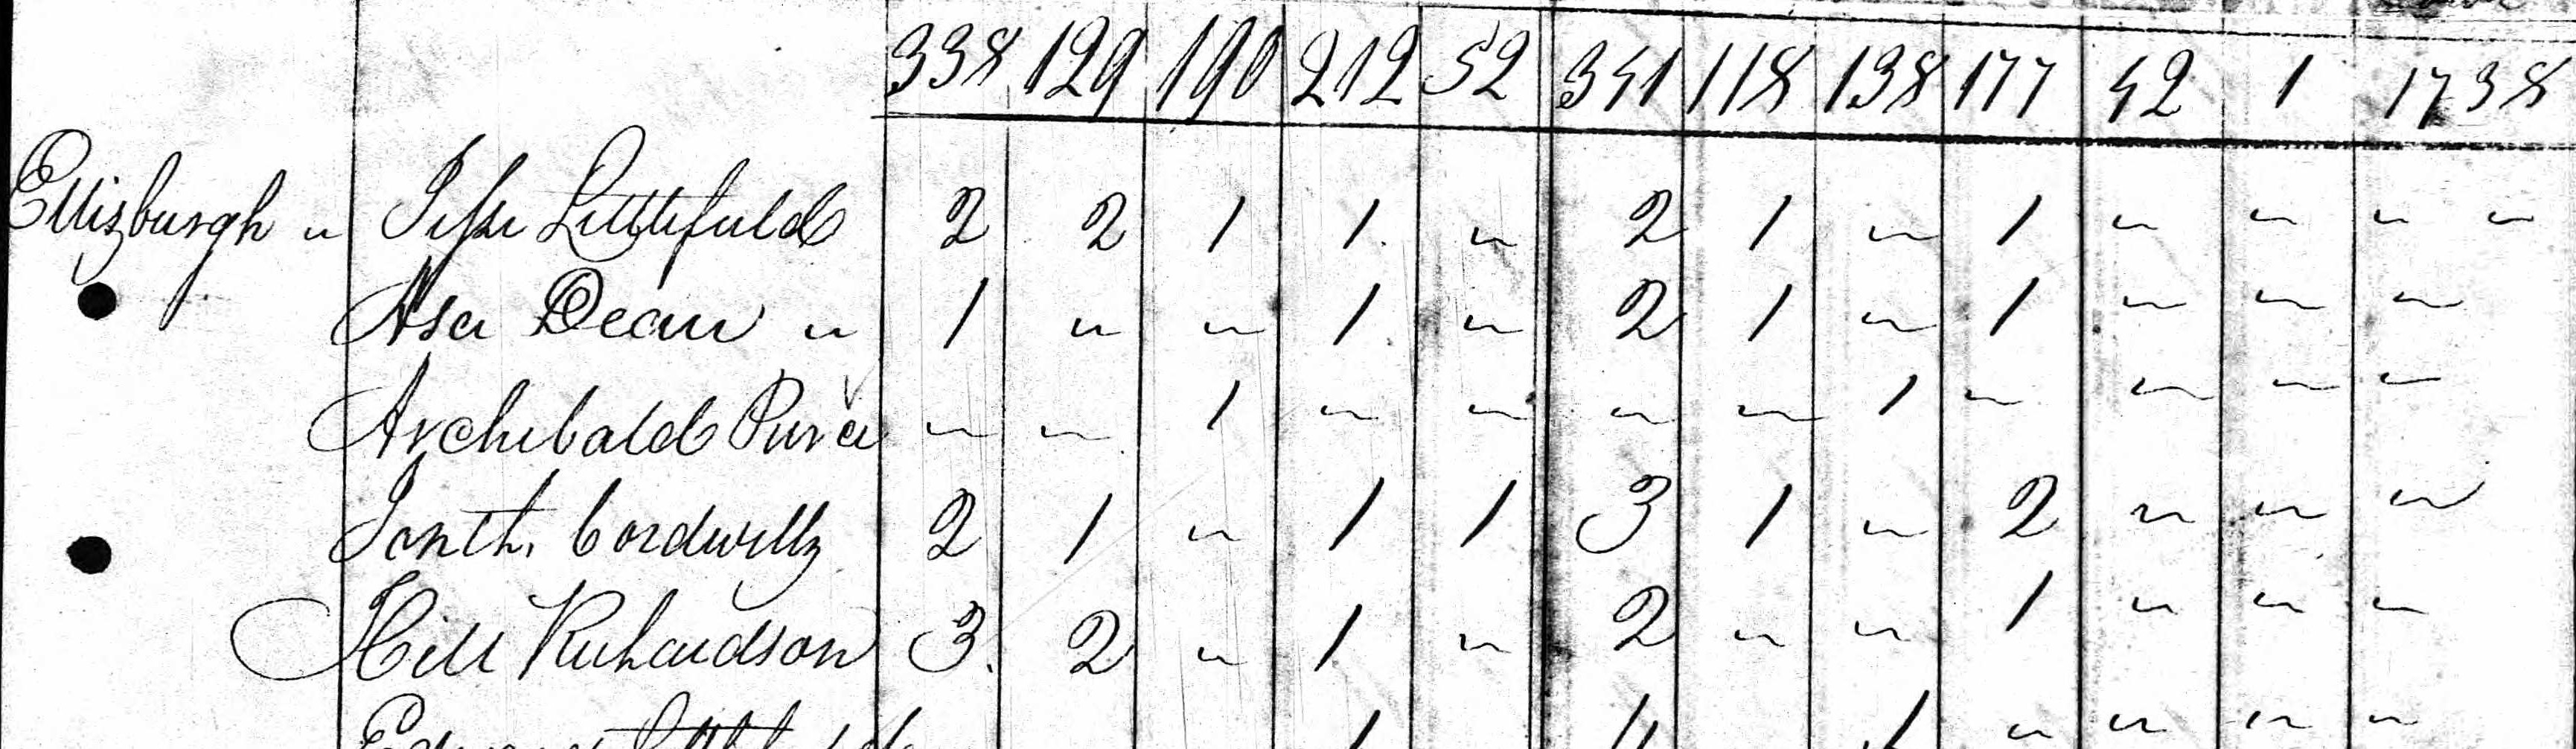 338 129 190 212 52 341 118 138 177 42 1 1738
Ellisburgh " Jesse Littlefield 2 2 1 1 " 2 1 " 1 " " " "
Asa Dean " 1 " " 1 " 2 1 " 1 " " "
Archibald Pierce " " 1 " " " " 1 " " " "
Jonth. Cordwell 2 1 " 1 1 3 1 " 2 " " "
Hill Richardson 3. 2 " 1 " 2 " " 1 " " "
1 1 " " " "